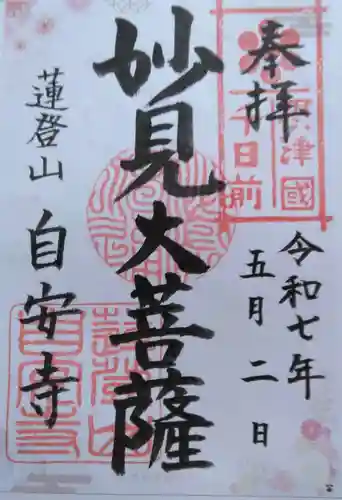 奉拝
摂津國
千日前
令和七年
五月二日
妙見大菩薩
蓮登山
自安寺